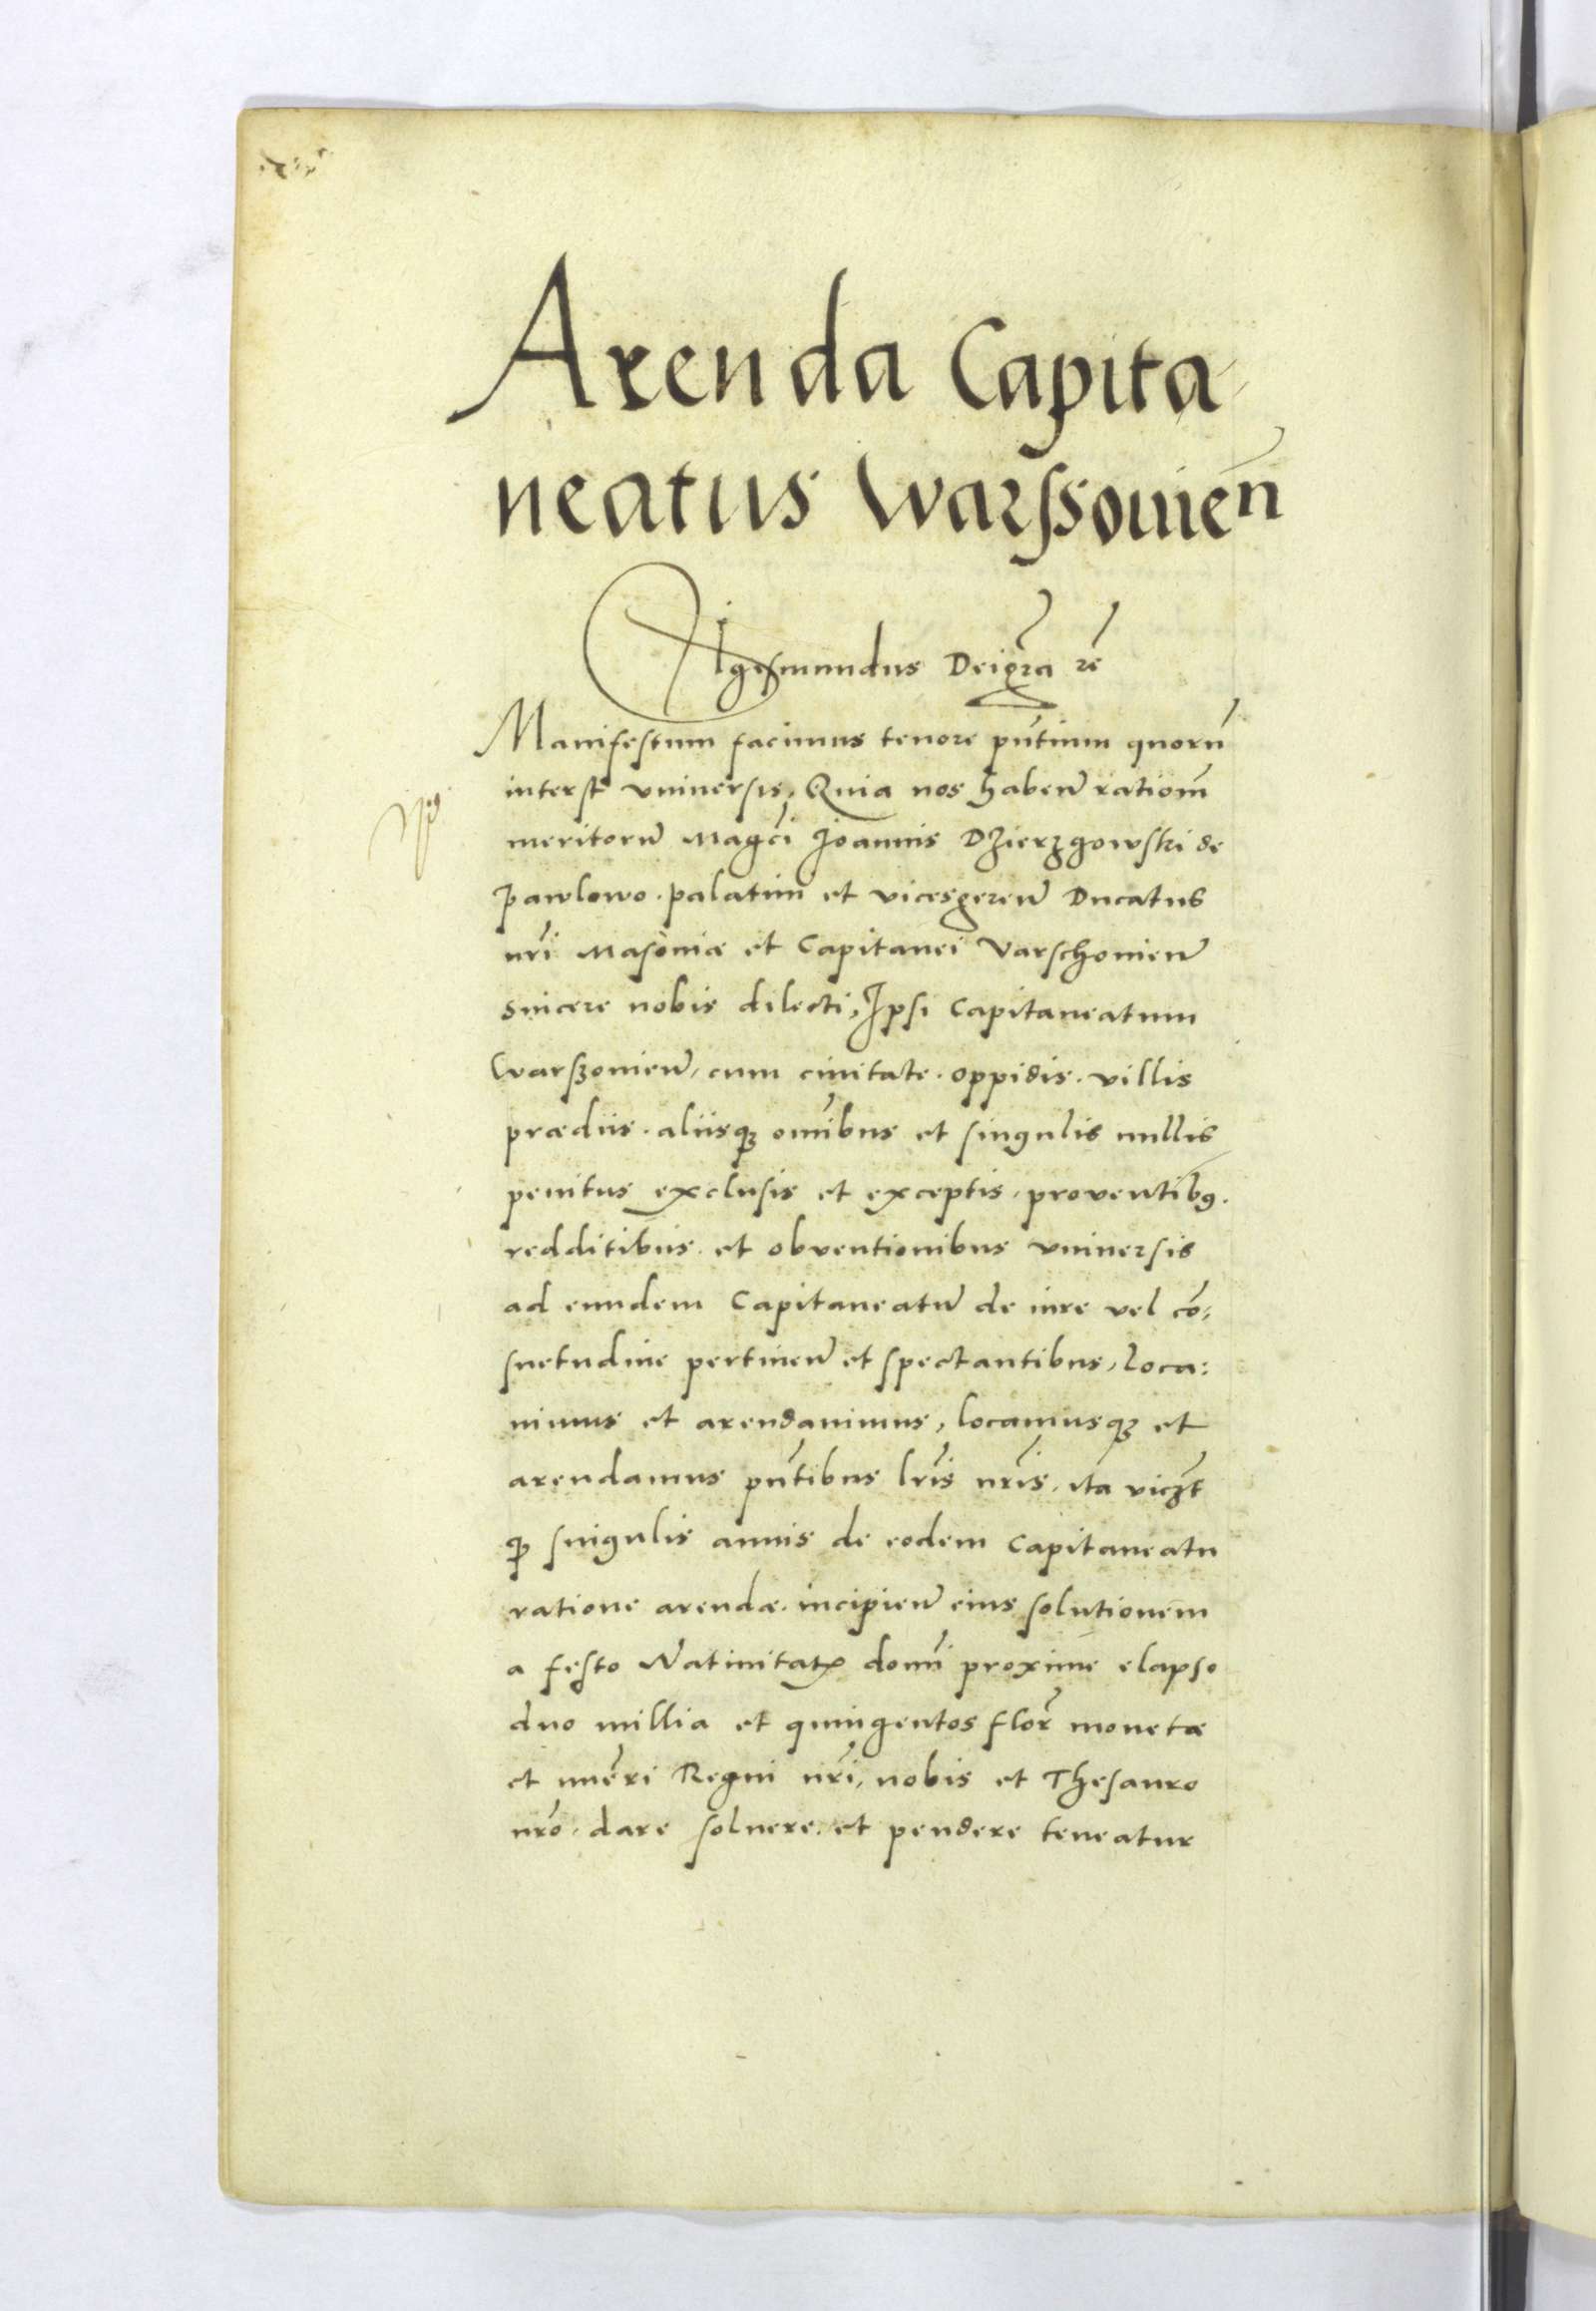 Arenda Capita
neatus Warssouien̄
Sigismundus Dei gr̃a rē
Manifestum facimus tenore pn̄tium quorū
interst̃ vniuersis, Quia nos habeñ rationm̃
meritorū Magc̃i Joannis Dzierzgowski de
Pawlowo. palatini et vicesgereñ Ducatus
nr̃i Masouiæ et Capitanei Varschouieñ
sincere nobis dilecti, Ipsi Capitaneatum
Warszouieñ, cum ciuitate. oppidis. villis
prædiis. aliisqꝫ omĩbus et singulis nullis
penitus exclusis et exceptis, prouentibꝰ.
redditibus. et obventionibus vniuersis
ad eundem Capitaneatū de iure vel cō,
suetudine pertineñ et spectantibus, loca:
uimus et arendauimus, locamusqꝫ et
arendamus pn̄tibus lr̃is nr̃is, ita vicꝫt
ꝙ singulis annis de eodem Capitaneatu
ratione arendæ. incipieñ eius solutionem
a festo Natiuitatꝭ domĩ proxime elapso
duo millia et quingentos flor̃ monetæ
et nũeri Regni nr̃i, nobis et Thesauro
nr̃o. dare soluere. et pendere teneatur